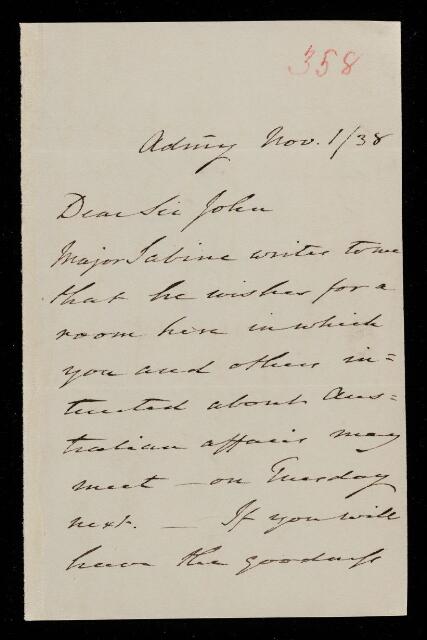 358
Admty Nov. 1/38
Dear Sir John
Major Sabine writes to me
that he wishes for a
room here in which
you and others in=
terested about Aus=
tralian affairs may
meet - on Tuesday
next. - If you will
have the goodness